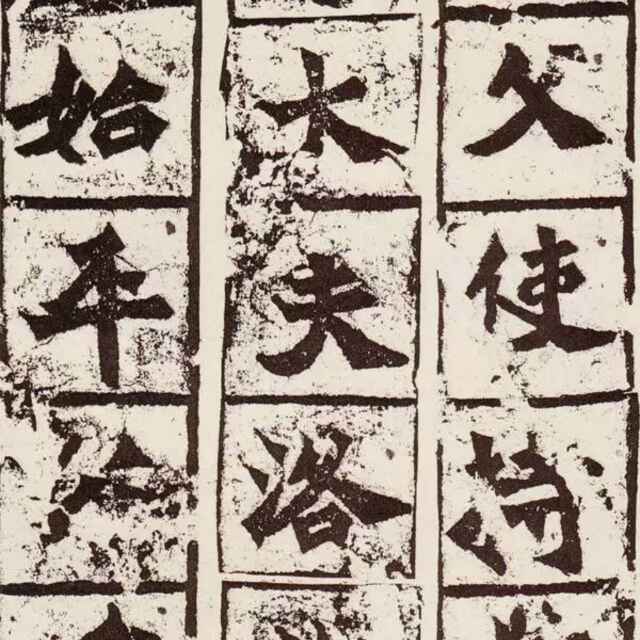 父使持
大夫洛
始平公